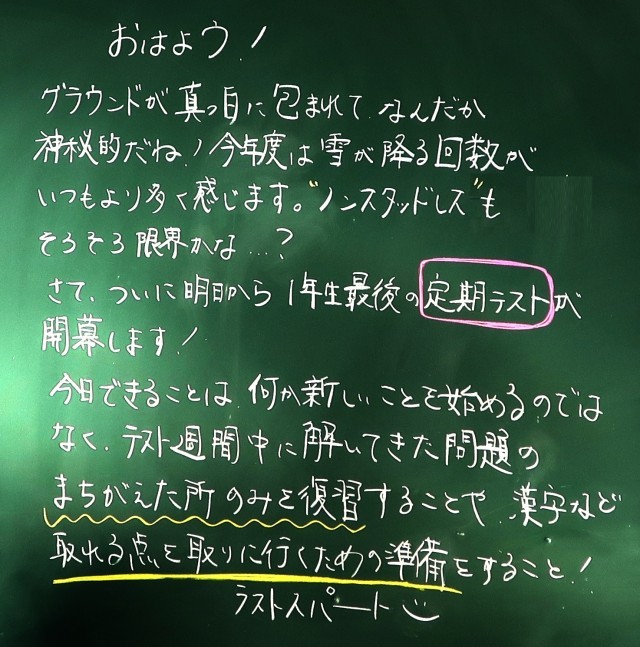 おはよう!
グラウンドが真っ白に包まれて、なんだか
神秘的だね!今年度は雪が降る回数が
いつもより多く感じます。"ノンスタッドレス"も
そろそろ限界かな…?
さて、ついに明日から1年生最後の定期テストが
開幕します!
今日できることは、何か新しいことを始めるのでは
なく、テスト週間中に解いてきた問題の
まちがえた所のみを復習することや、漢字など
取れる点を取りに行くための準備をすること!
ラストスパート